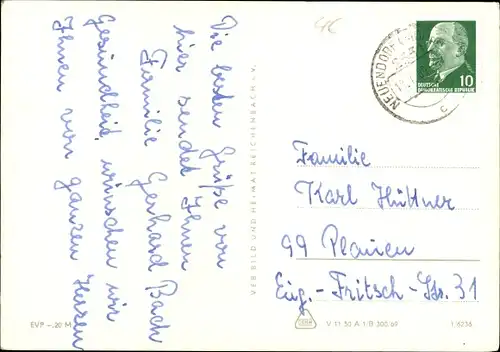 Die besten Grüße von
hier sendet Ihnen
Familie Gerhard Bach
Gesundheit wünschen wir
Ihnen von ganzen Herzen
VEB BILD UND HEIMAT REICHENBACH i. V.
4C
NEUENDORF
10
DEUTSCHE
DEMOKRATISCHE REPUBLIK
Familie
Karl Hüttner
99 Plauen
Eug.-Fritsch-Str. 31
EVP -,20 M
V 11 50 A 1/B 300/69
1/6236